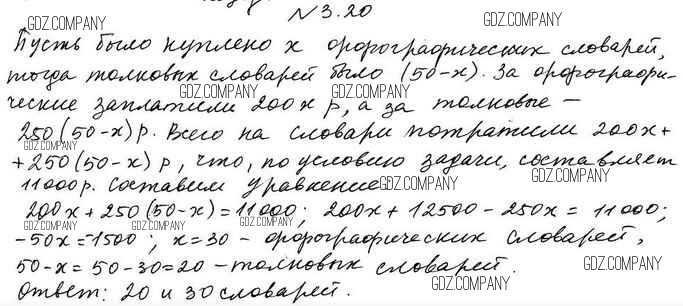 №3.20
GDZ.COMPANY
Пусть было куплено x орфографических словарей,
GDZ.COMPANY
тогда толковых словарей было (50-x). За орфографи-
GDZ.COMPANY GDZ.COMPANY
ческие заплатили 200x р, а за толковые –
250(50-x) р. Всего на словари потратили 200x+
GDZ.COMPANY
+250(50-x) р, что, по условию задачи, составляет
GDZ.COMPANY
11000 р. Составим уравнение:
GDZ.COMPANY
200x+250(50-x)=11000; 200x+12500-250x=11000;
GDZ.COMPANY GDZ.COMPANY GDZ.COMPANY
-50x=-1500; x=30 - орфографических словарей,
50-x=50-30=20 - толковых словарей.
GDZ.COMPANY
Ответ: 20 и 30 словарей.
GDZ.COMPANY